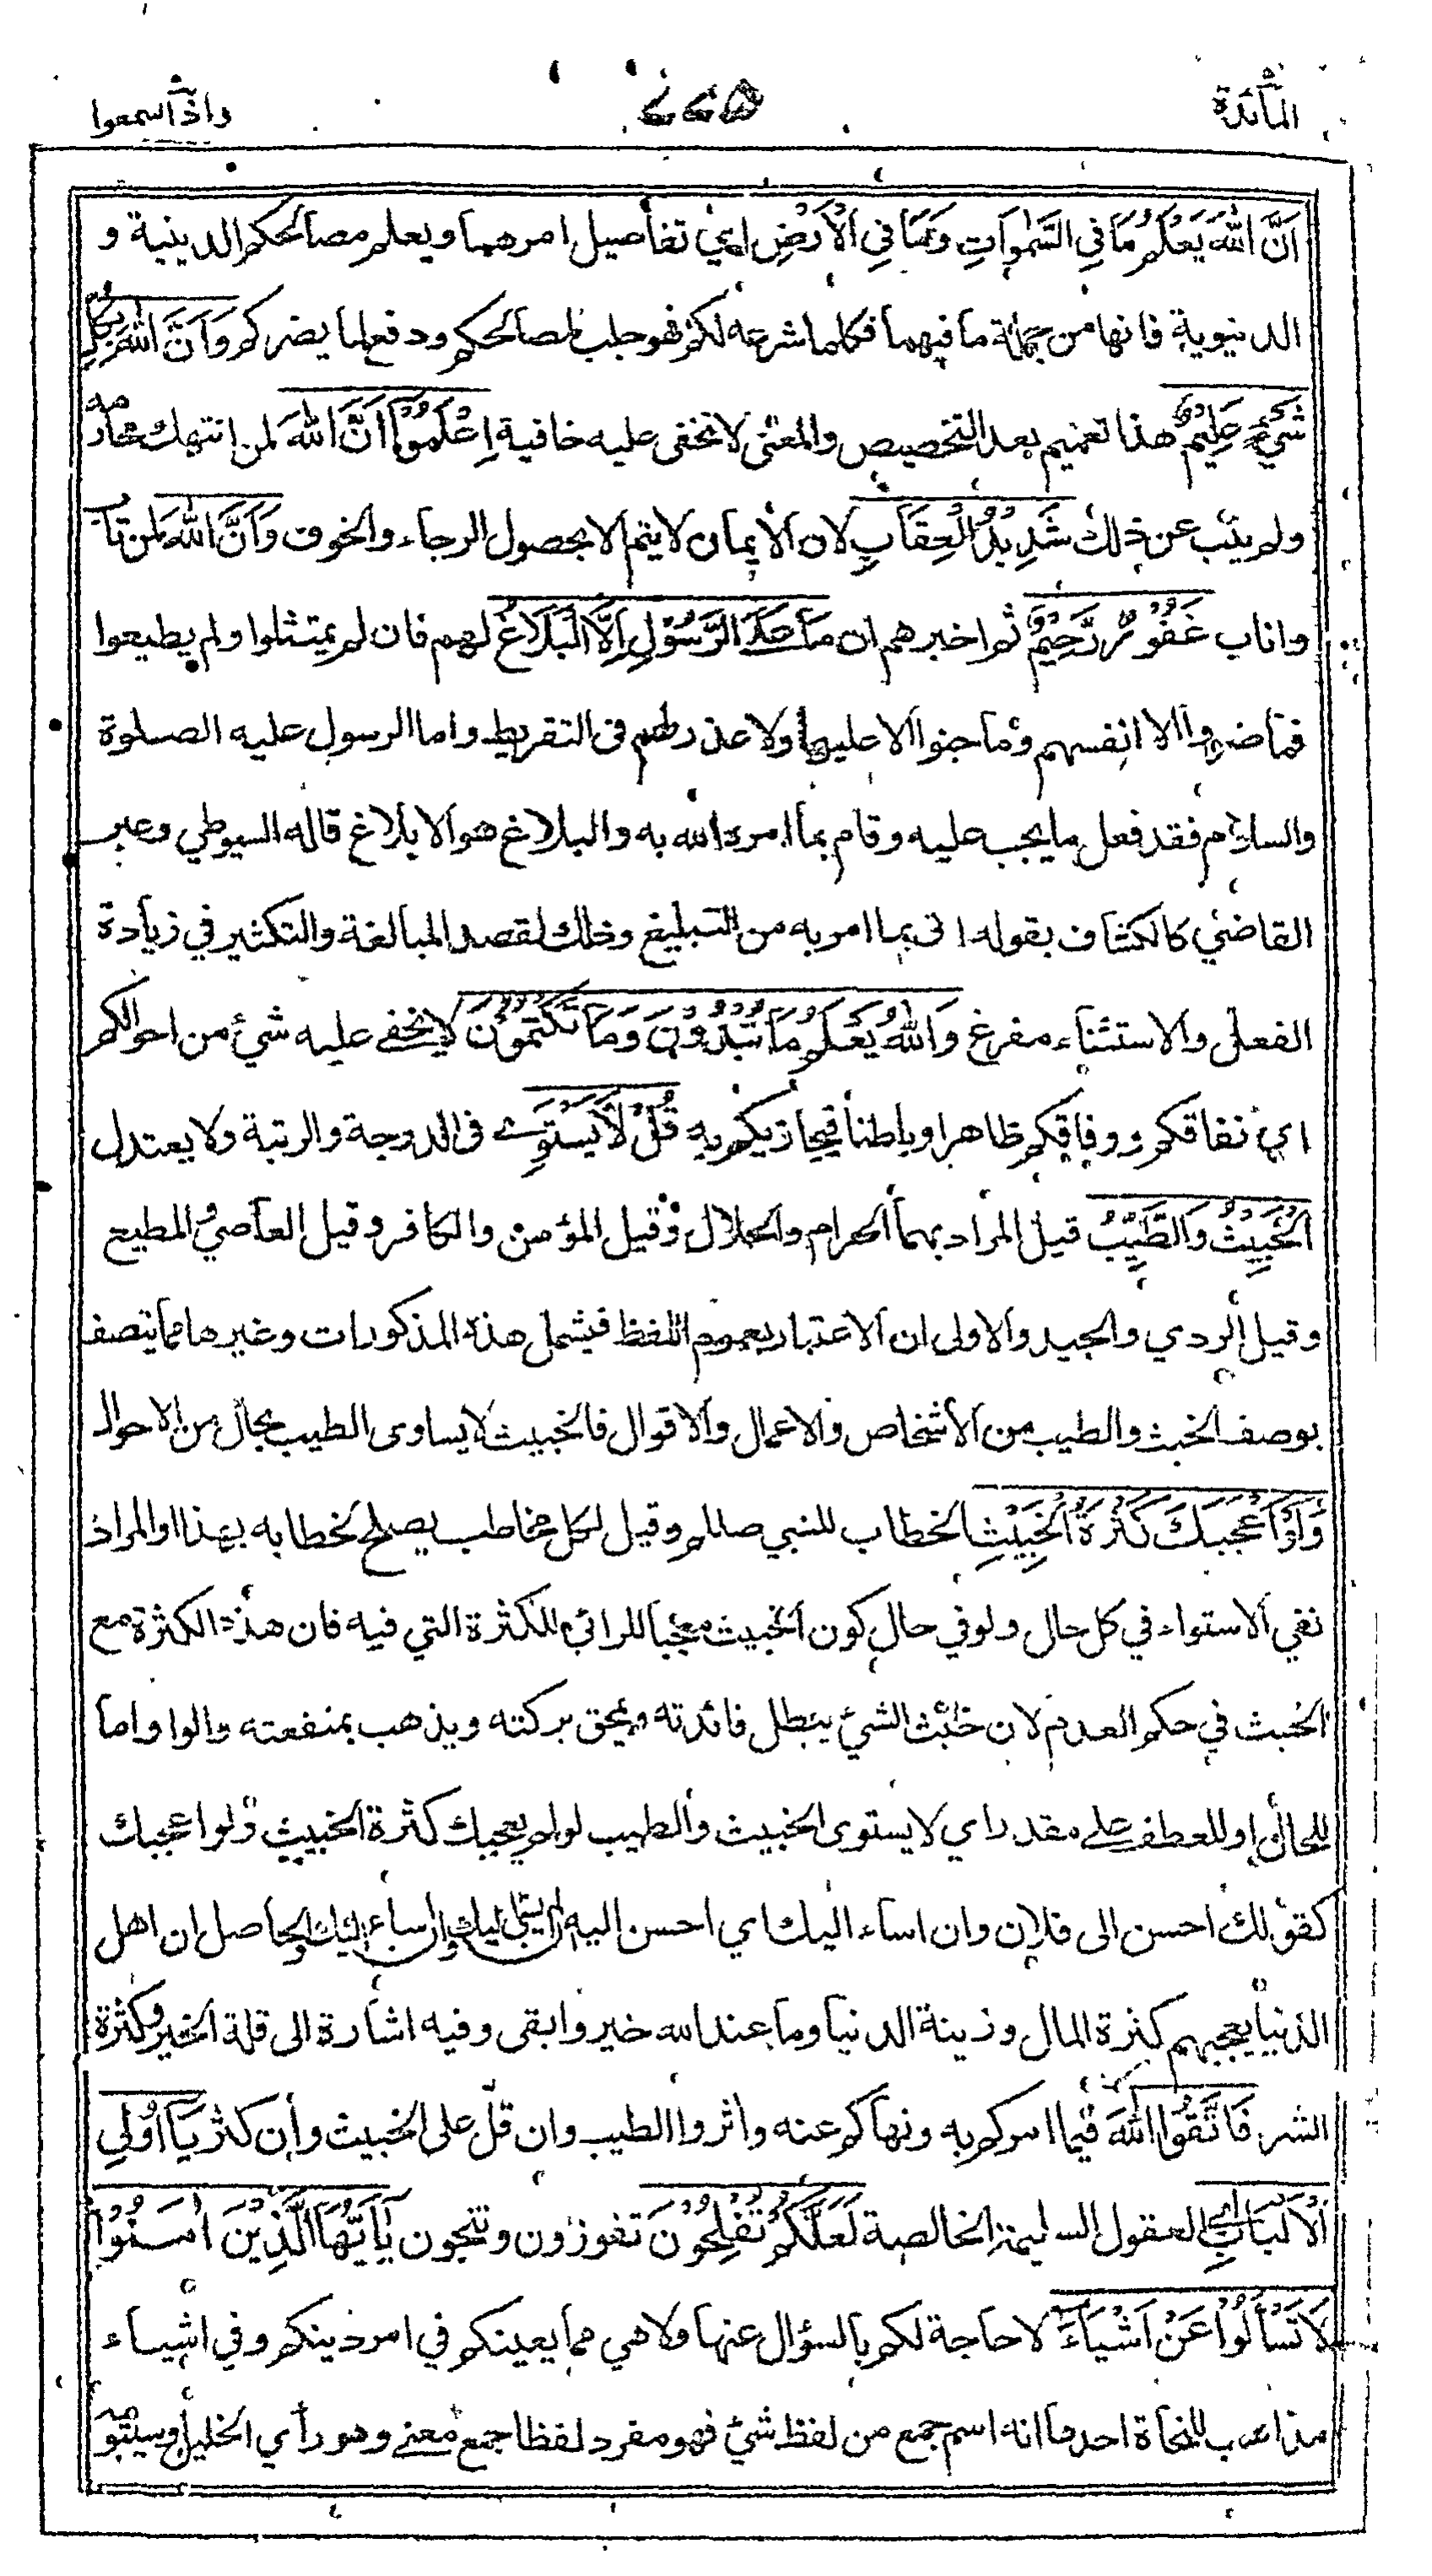 المآئدة
٦٦٥
واذا سمعوا
اَنَّ اللّٰهَ يَعْلَمُ مَا فِي السَّمٰوَاتِ وَمَا فِي الْاَرْضِ اي تفاصيل امرهما ويعلم مصالحكم الدينية و
الدنيوية فانها من جملة ما فيهما فكلما شرعه لكم فهو جلب لمصالحكم ودفع لما يضركم وَاَنَّ اللّٰهَ بِكُلِّ
شَيْءٍ عَلِيْمٌ هذا تعميم بعد التخصيص والمعنى لا تخفى عليه خافية اِعْلَمُوْا اَنَّ اللّٰهَ لمن انتهك محارمه
ولم يتب عن ذلك شَدِيْدُ الْعِقَابِ لان الايمان لا يتم الا بحصول الرجاء والخوف وَاَنَّ اللّٰهَ لمن تاب
واناب غَفُوْرٌ رَّحِيْمٌ ثم اخبرهم ان مَا عَلَى الرَّسُوْلِ اِلَّا الْبَلَاغُ لهم فان لم يمتثلوا ولم يطيعوا
فما ضروا الا انفسهم وما جنوا الا عليها ولا عذر لهم في التفريط واما الرسول عليه الصلوة
والسلام فقد فعل ما يجب عليه وقام بما امره الله به والبلاغ هو الابلاغ قاله السيوطي وعبر
القاضي كالكشاف بقوله اتى بما امر به من التبليغ وذلك لقصد المبالغة والتكثير في زيادة
الفعل والاستثناء مفرغ وَاللّٰهُ يَعْلَمُ مَا تُبْدُوْنَ وَمَا تَكْتُمُوْنَ لا يخفى عليه شيئ من احوالكم
اي نفاقكم ووفاقكم ظاهرا وباطنا فيجازيكم به قُلْ لَّا يَسْتَوِي في الدرجة والرتبة ولا يعتدل
الْخَبِيْثُ وَالطَّيِّبُ قيل المراد بهما الحرام والحلال وقيل المؤمن والكافر وقيل العاصي والمطيع
وقيل الردي والجيد والاولى ان الاعتبار بعموم اللفظ فيشمل هذه المذكورات وغيرها مما يتصف
بوصف الخبث والطيب من الاشخاص والاعمال والاقوال فالخبيث لا يساوى الطيب بحال من الاحوال
وَلَوْ اَعْجَبَكَ كَثْرَةُ الْخَبِيْثِ الخطاب للنبي صللم وقيل لكل مخاطب يصلح لخطابه بهذا والمراد
نفي الاستواء في كل حال ولو في حال كون الخبيث معجبا للرائي للكثرة التي فيه فان هذه الكثرة مع
الخبث في حكم العدم لان خبث الشيئ يبطل فائدته ويمحق بركته ويذهب بمنفعته والواو اما
للحال او للعطف على مقدر اي لا يستوى الخبيث والطيب لو لم يعجبك كثرة الخبيث ولو اعجبك
كقولك احسن الى فلان وان اساء اليك اي احسن اليه ان لم يسئ اليك وان اساء اليك والحاصل ان اهل
الدنيا يعجبهم كثرة المال وزينة الدنيا وما عند الله خير وابقى وفيه اشارة الى قلة الخير وكثرة
الشر فَاتَّقُوا اللّٰهَ فيما امركم به ونهاكم عنه واثروا الطيب وان قلّ على الخبيث وان كثر يَآ اُولِي
الْاَلْبَابِ اي العقول السليمة الخالصة لَعَلَّكُمْ تُفْلِحُوْنَ تفوزون وتنجون يٰٓاَيُّهَا الَّذِيْنَ اٰمَنُوْا
لَا تَسْاَلُوْا عَنْ اَشْيَاءَ لا حاجة لكم بالسؤال عنها ولا هي مما يعينكم في امر دينكم وفي اشياء
مذاهب للنحاة احدها انه اسم جمع من لفظ شيئ فهو مفرد لفظا جمع معنى وهو رأي الخليل وسيبويه